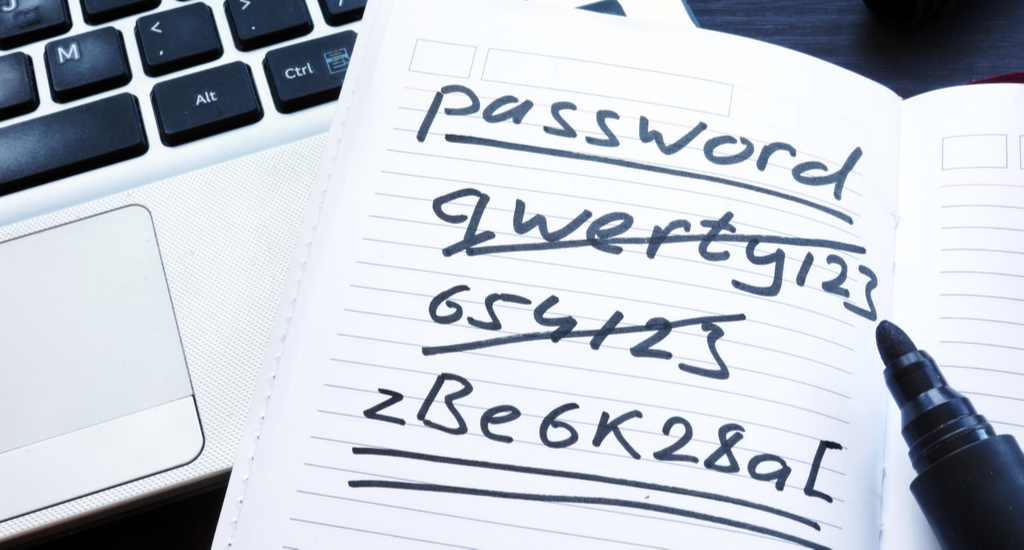 J
M
< ,
> .
Alt
Ctrl
password
qwerty123
654123
zBe6K28a[